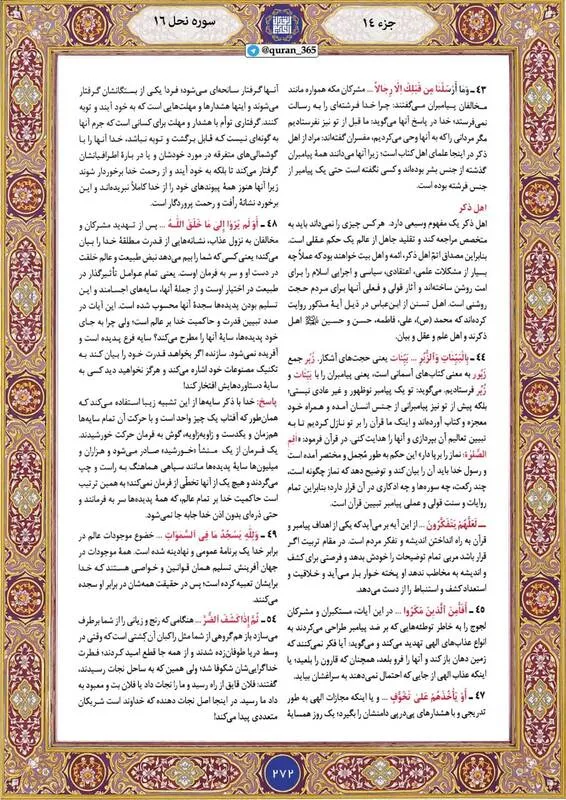 جزء ١٤
سوره نحل ١٦
@quran_365
٤٣ـ وَمَا أَرْسَلْنَا مِن قَبْلِكَ إِلَّا رِجَالاً ... مشرکان مکه همواره مانند
مخالفان پیامبران می‌گفتند: چرا خدا فرشته‌ای را به رسالت
نمی‌فرستد؛ خدا در پاسخ آنها می‌گوید: ما قبل از تو نیز نفرستادیم
مگر مردانی را که به آنها وحی می‌کردیم. مفسران گفته‌اند: مراد از اهل
ذکر در اینجا علمای اهل کتاب است؛ زیرا آنها می‌دانند همهٔ پیامبران
گذشته از جنس بشر بوده‌اند و کسی نگفته است حتی یک پیامبر از
جنس فرشته بوده است.
اهل ذکر
اهل ذکر یک مفهوم وسیعی دارد. هر کس چیزی را نمی‌داند باید به
متخصص مراجعه کند و تقلید جاهل از عالم یک حکم عقلی است.
بنابراین مصداق اتمّ اهل ذکر، ائمه و اهل بیت خواهند بود که عملاً چه
بسیار از مشکلات علمی، اعتقادی، سیاسی و اجرایی اسلام را برای
امت روشن ساخته‌اند و آثار قولی و فعلی آنها برای مردم حجت
روشنی است. اهل تسنن از ابن‌عباس در ذیل آیهٔ مذکور روایت
کرده‌اند که محمد (ص)، علی، فاطمه، حسن و حسین اهل
ذکرند و اهل علم و عقل و بیان.
٤٤ـ بِالْبَيِّنَاتِ وَالزُّبُرِ ... بَيِّنات یعنی حجت‌های آشکار. زُبُر جمع
زَبُور به معنی کتاب‌های آسمانی است، یعنی پیامبران را با بَيِّنات و
زُبُر فرستادیم. می‌گوید: تو یک پیامبر نوظهور و غیر عادی نیستی؛
بلکه پیش از تو نیز پیامبرانی از جنس انسان آمده و همراه خود
معجزه و کتاب آورده‌اند و اینک ما قرآن را بر تو نازل کردیم تا به
تبیین تعالیم آن بپردازی و آنها را هدایت کنی. در قرآن فرمود: «اَقِمِ
الصَّلوٰة؛ نماز را برپا دار» این حکم به طور مُجمل و مختصر آمده است
و رسول خدا باید آن را بیان کند و توضیح دهد که نماز چگونه است،
چند رکعت، چه سوره‌ها و چه اذکاری در آن قرار دارد؛ بنابراین تمام
روایات و سنت قولی و عملی پیامبر تبیین قرآن است.
ـ لَعَلَّهُمْ يَتَفَكَّرُونَ ... از این آیه بر می‌آید که یکی از اهداف پیامبر و
قرآن به راه انداختن اندیشه و تفکر مردم است. در مقام تربیت اگر
قرار باشد مربی تمام توضیحات را خودش بدهد و فرصتی برای کشف
و اندیشه به مخاطب ندهد او پخته خوار بار می‌آید و خلاقیت و
استعداد کشف و استنباط را از دست می‌دهد.
٤٥ـ أَفَأَمِنَ الَّذِينَ مَكَرُوا ... در این آیات، مستکبران و مشرکان
لجوج را به خاطر توطئه‌هایی که بر ضد پیامبر طراحی می‌کردند به
انواع عذاب‌های الهی تهدید می‌کند و می‌گوید: آیا فکر نمی‌کنند که
زمین دهان باز کند و آنها را فرو بلعد، همچنان که قارون را بلعید؛ یا
اینکه عذاب الهی از جایی که احتمال نمی‌دهند به سراغشان بیاید.
٤٧ـ أَوْ يَأْخُذَهُمْ عَلَىٰ تَخَوُّفٍ ... و یا اینکه مجازات الهی به طور
تدریجی و با هشدارهای پی‌درپی دامنشان را بگیرد؛ یک روز همسایهٔ
آنها گرفتار سانحه‌ای می‌شود؛ فردا یکی از بستگانشان گرفتار
می‌شوند و اینها هشدارها و مهلت‌هایی است که به خود آیند و توبه
کنند. گرفتاری توأم با هشدار و مهلت برای کسانی است که جرم آنها
به گونه‌ای نیست که قابل برگشت و توبه نباشد، خدا آنها را با
گوشمالی‌های متفرقه در مورد خودشان و یا در بارهٔ اطرافیانشان
گرفتار می‌کند تا بلکه به خود آیند و از رحمت خدا برخوردار شوند
زیرا آنها هنوز همهٔ پیوندهای خود را از خدا کاملاً نبریده‌اند و این
برخورد نشانهٔ رأفت و رحمت پروردگار است.
٤٨ـ أَوَلَمْ يَرَوْا إِلَىٰ مَا خَلَقَ اللَّهُ ... پس از تهدید مشرکان و
مخالفان به نزول عذاب، نشانه‌هایی از قدرت مطلقهٔ خدا را بیان
می‌کند؛ یعنی کسی که شما را بیم می‌دهد نبض طبیعت و عالم خلقت
در دست او و سر به فرمان اوست. یعنی تمام عوامل تأثیرگذار در
طبیعت در اختیار اوست و از جملهٔ آنها، سایه‌های اجسامند و این
تسلیم بودن پدیده‌ها سجدهٔ آنها محسوب شده است. این آیات در
صدد تبیین قدرت و حاکمیت خدا بر عالم است؛ ولی چرا به جای
خود پدیده‌ها، سایهٔ آنها را مطرح می‌کند؟ سایه فرع پدیده است و
آفریده نمی‌شود. سازنده اگر بخواهد قدرت خود را بیان کند به
تکنیک مصنوعات خود اشاره می‌کند و هرگز نخواهید دید کسی به
سایهٔ دستاوردهایش افتخار کند!
پاسخ: خدا با ذکر سایه‌ها از این تشبیه زیبا استفاده می‌کند که
همان‌طور که آفتاب یک چیز واحد است و با حرکت آن تمام سایه‌ها
همزمان و یکدست و زاویه‌زاویه، گوش به فرمان حرکت خورشیدند.
یک فرمان از یک منشأ «خورشید» صادر می‌شود و هزاران و
میلیون‌ها سایهٔ پدیده‌ها مانند سپاهی هماهنگ به راست و چپ
می‌گردند و هیچ یک از آنها تخطّی از فرمان نمی‌کند؛ به همین ترتیب
است حاکمیت خدا بر تمام عالم، که همهٔ پدیده‌ها سر به فرمانند و
حتی ذره‌ای بدون اذن خدا جابه جا نمی‌شود.
٤٩ـ وَلِلَّهِ يَسْجُدُ مَا فِي السَّمَوَاتِ ... خضوع موجودات عالم در
برابر خدا یک برنامهٔ عمومی و نهادینه شده است. همهٔ موجودات در
جهان آفرینش تسلیم همان قوانین و خواصی هستند که خدا
برایشان تعبیه کرده است؛ پس در حقیقت همه‌شان در برابر او سجده
می‌کنند.
٥٤ـ ثُمَّ إِذَا كَشَفَ الضُّرَّ ... هنگامی که رنج و زیانی را از شما برطرف
می‌سازد باز هم گروهی از شما مثل راکبان آن کشتی است که وقتی در
وسط دریا طوفان‌زده شدند و از همه جا قطع امید کردند؛ فطرت
خداگرایی‌شان شکوفا شد؛ ولی همین که به ساحل نجات رسیدند،
گفتند: فلان قایق از راه رسید و ما را نجات داد یا فلان بت و معبود به
داد ما رسید. در اینجا اصل نجات دهنده که خداوند است شریکان
متعددی پیدا می‌کند!
٢٧٢